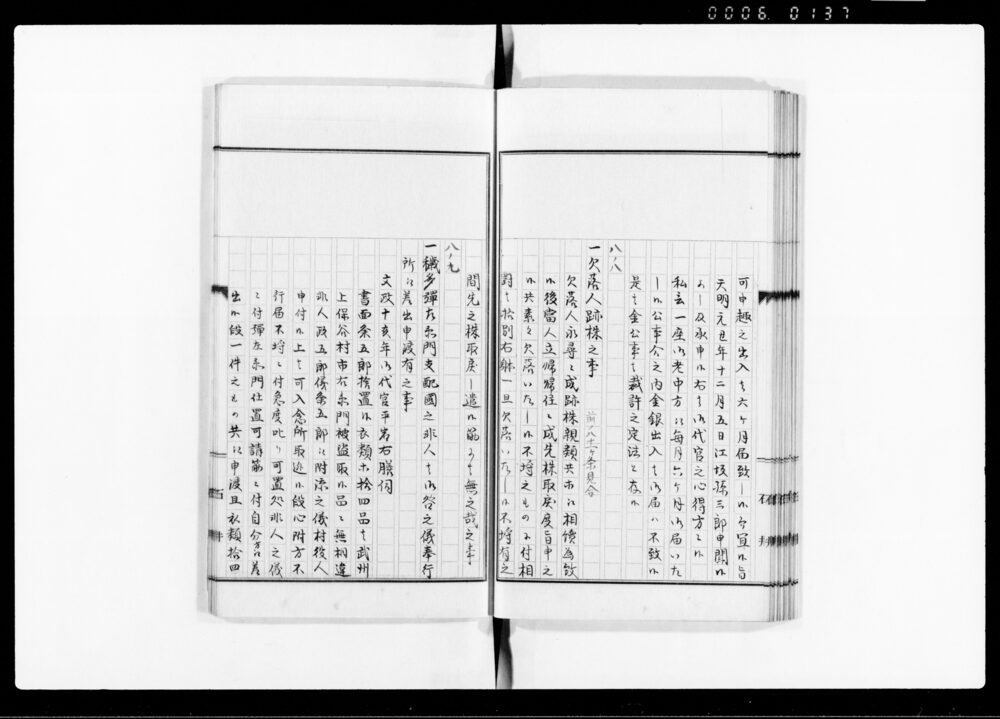 0006 0137
可申趣之出入も六ヶ月届致し候ハヽ宜候旨
天明元丑年十二月五日江坂孫三郎申聞候
よし及承申候右も御代官之心得方ニ候
私云一座御老中方江毎月六ヶ月御届いた
し候公事合之内金銀出入も御届ハ不致候
是も金公事も裁許之定法と存候
八ノ八
一欠落人跡株之事
前ノ八十二ヶ条見合
欠落人永尋ニ成跡株親類共方江相續為致
候後當人立帰帰住ニ成先株取戻度旨申之
候共素々欠落いたし候不埒之もの付相
對も格別右躰一旦欠落いたし候不埒有之
間先之株取戻し遣候筋ニも無之哉之事
八ノ九
一穢多彈左衛門支配國之非人も御咎之儀奉行
所江差出申渡有之事
文政十亥年御代官平岩右膳伺
書面条五郎捨置候衣類十拾四品も武州
上保谷村市左衛門被盗取候品ニ無相違
非人政五郎儀条五郎江附添之儀村役人
申付候上も可入念所取逃候段心附方不
行届不埒ニ付急度叱り可置処非人之儀
ニ付彈左衛門仕置可請筋ニ付自分方江差
出候段一件之もの共江申渡且衣類拾四
石井